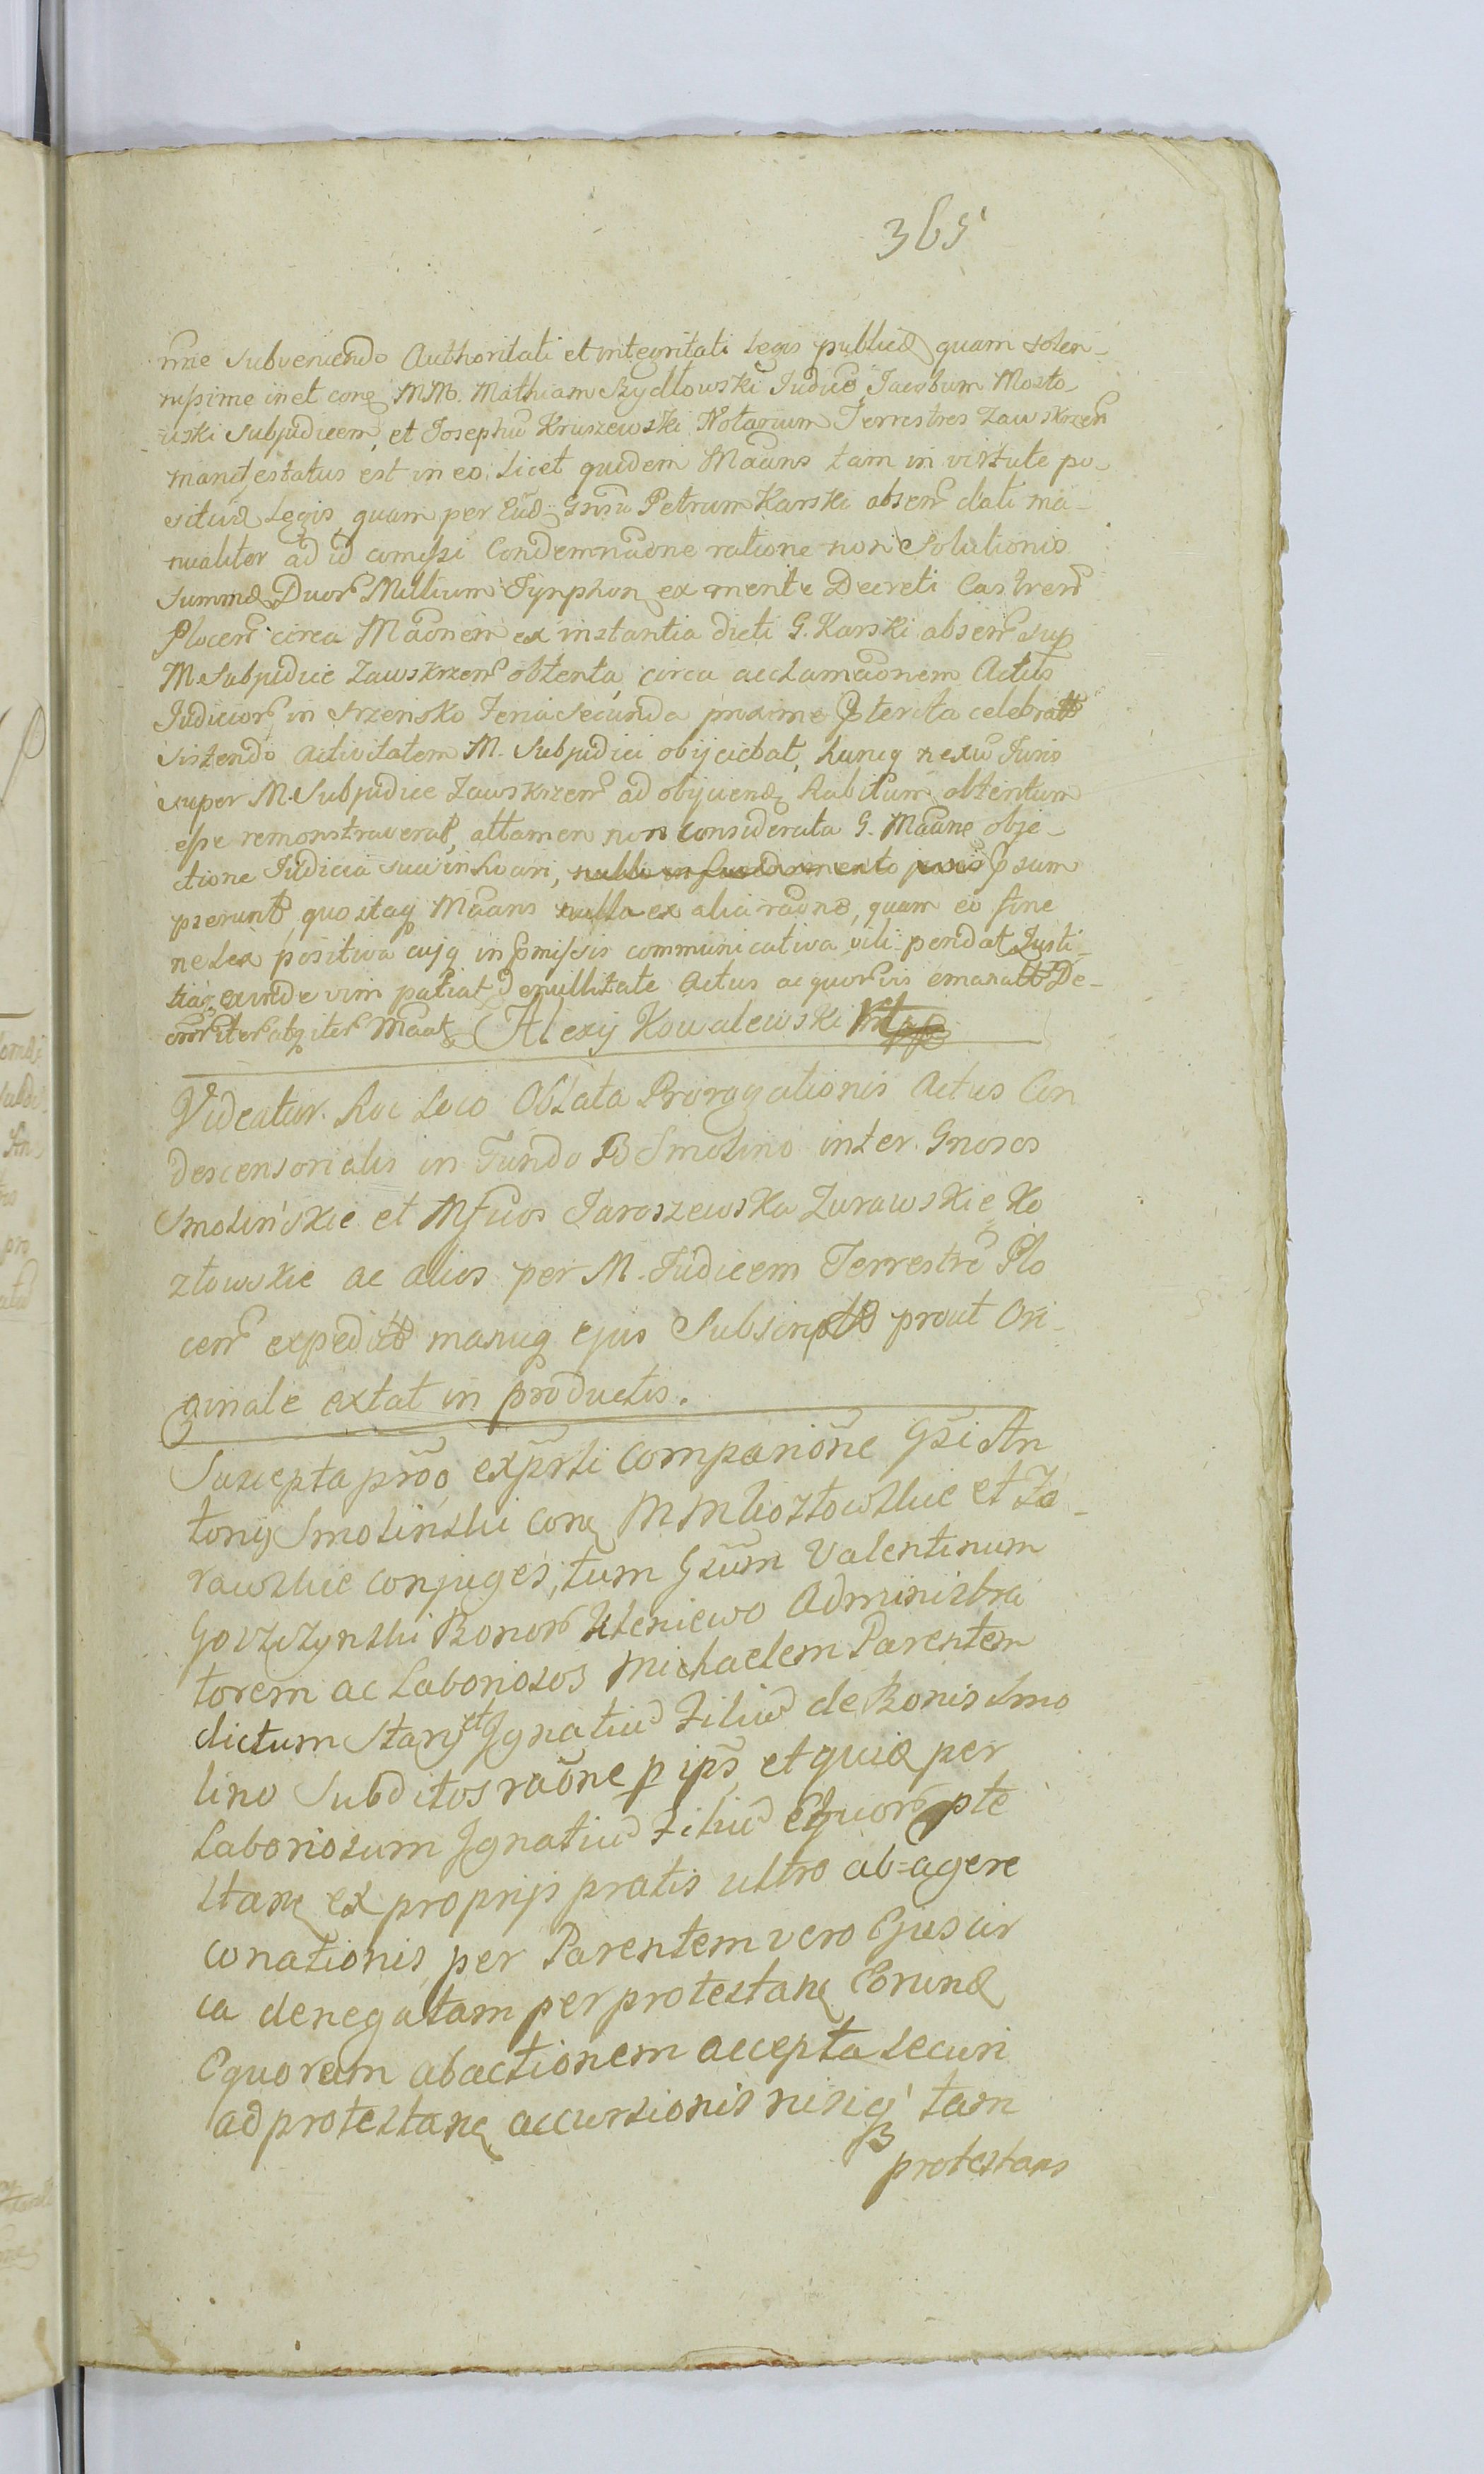 365
me subveniendo Authoritati et integritati Legis publicæ quam solen-
nissime in et conq MM. Mathiam Szydłowski Judice, Jacobum Mosto-
wski Subjudicem, et Josephũ Kruszewski Notarium Terrestres Zawskrzen
manifestatus est in eo. Licet quidem Maãns tam in virtute po-
sitivæ Legis, quam per Gnsũ Petrum Karski absen dati ma-
nualiter ad id comissi Condemnaõne ratione non Solutionis
Summæ Duor Millium Tynphon ex mente Decreti Castren
Plocen circa Maõnem ex instantia dicti G. Karski absen sup
M. Subjudice Zawskrzen obtenta, circa acclamaõnem Actus
Judicior in Srzensko Feria Secunda proxime pterita celebratt
sistendo activitatem M. Subjudici obijciebat, huncq nexũ Juris
super M. Subjudice Zawskrzen ad obijciend habitum obtentum
esse remonstraverat, attamen non considerata G. Maãne obje-
ctione Judicia sua inchoari, nullo in fundamento juris psum
pserunt, quo itaq Maãns nulla ex alia raõne, quam eo fine
ne Lex positiva cujq in pmissis communicativa vili-pendat Justi-
tiaq exinde vim patiat, de nullitate Actus ac quorvis emanatt De-
cror iter atq iter Maat. Alexy Kowalewski mpp
Videatur. hoc Loco Oblata Prorogationis Actus Con
descensorialis in Fundo B Smolino inter Gnosos
Smolińskie et Mfcos Jaroszewska Zurawskie Ko
złowskie ac alios per M. Judicem Terrestre Plo
cen expedit manuq ejus Subscript prout Ori-
ginale extat in productis.
Suscepta prõo exprti Comparione Gsi An
tonij Smolinski conq MM Kozłowskie et Zu-
rawskie conjuges, tum Gsũm Valentinum
Gorzezynski Bonor Uleniewo Administra
torem ac Laboriosos Michaelem Parentem
dictum Stary et Ignatiũ Filiũ de Bonis Smo
lino Subditos raõne p ips et quia per
Laboriosum Ignatiũ Filiũ Equor pte
stanq ex proprijs pratis ultro ab=agere
conationis, per Parentem vero Ejus cir
ca denegatam per protestanq Eorund
Equorum abactionem accepta securi
ad protestanq accursionis nisiq tam
protestans